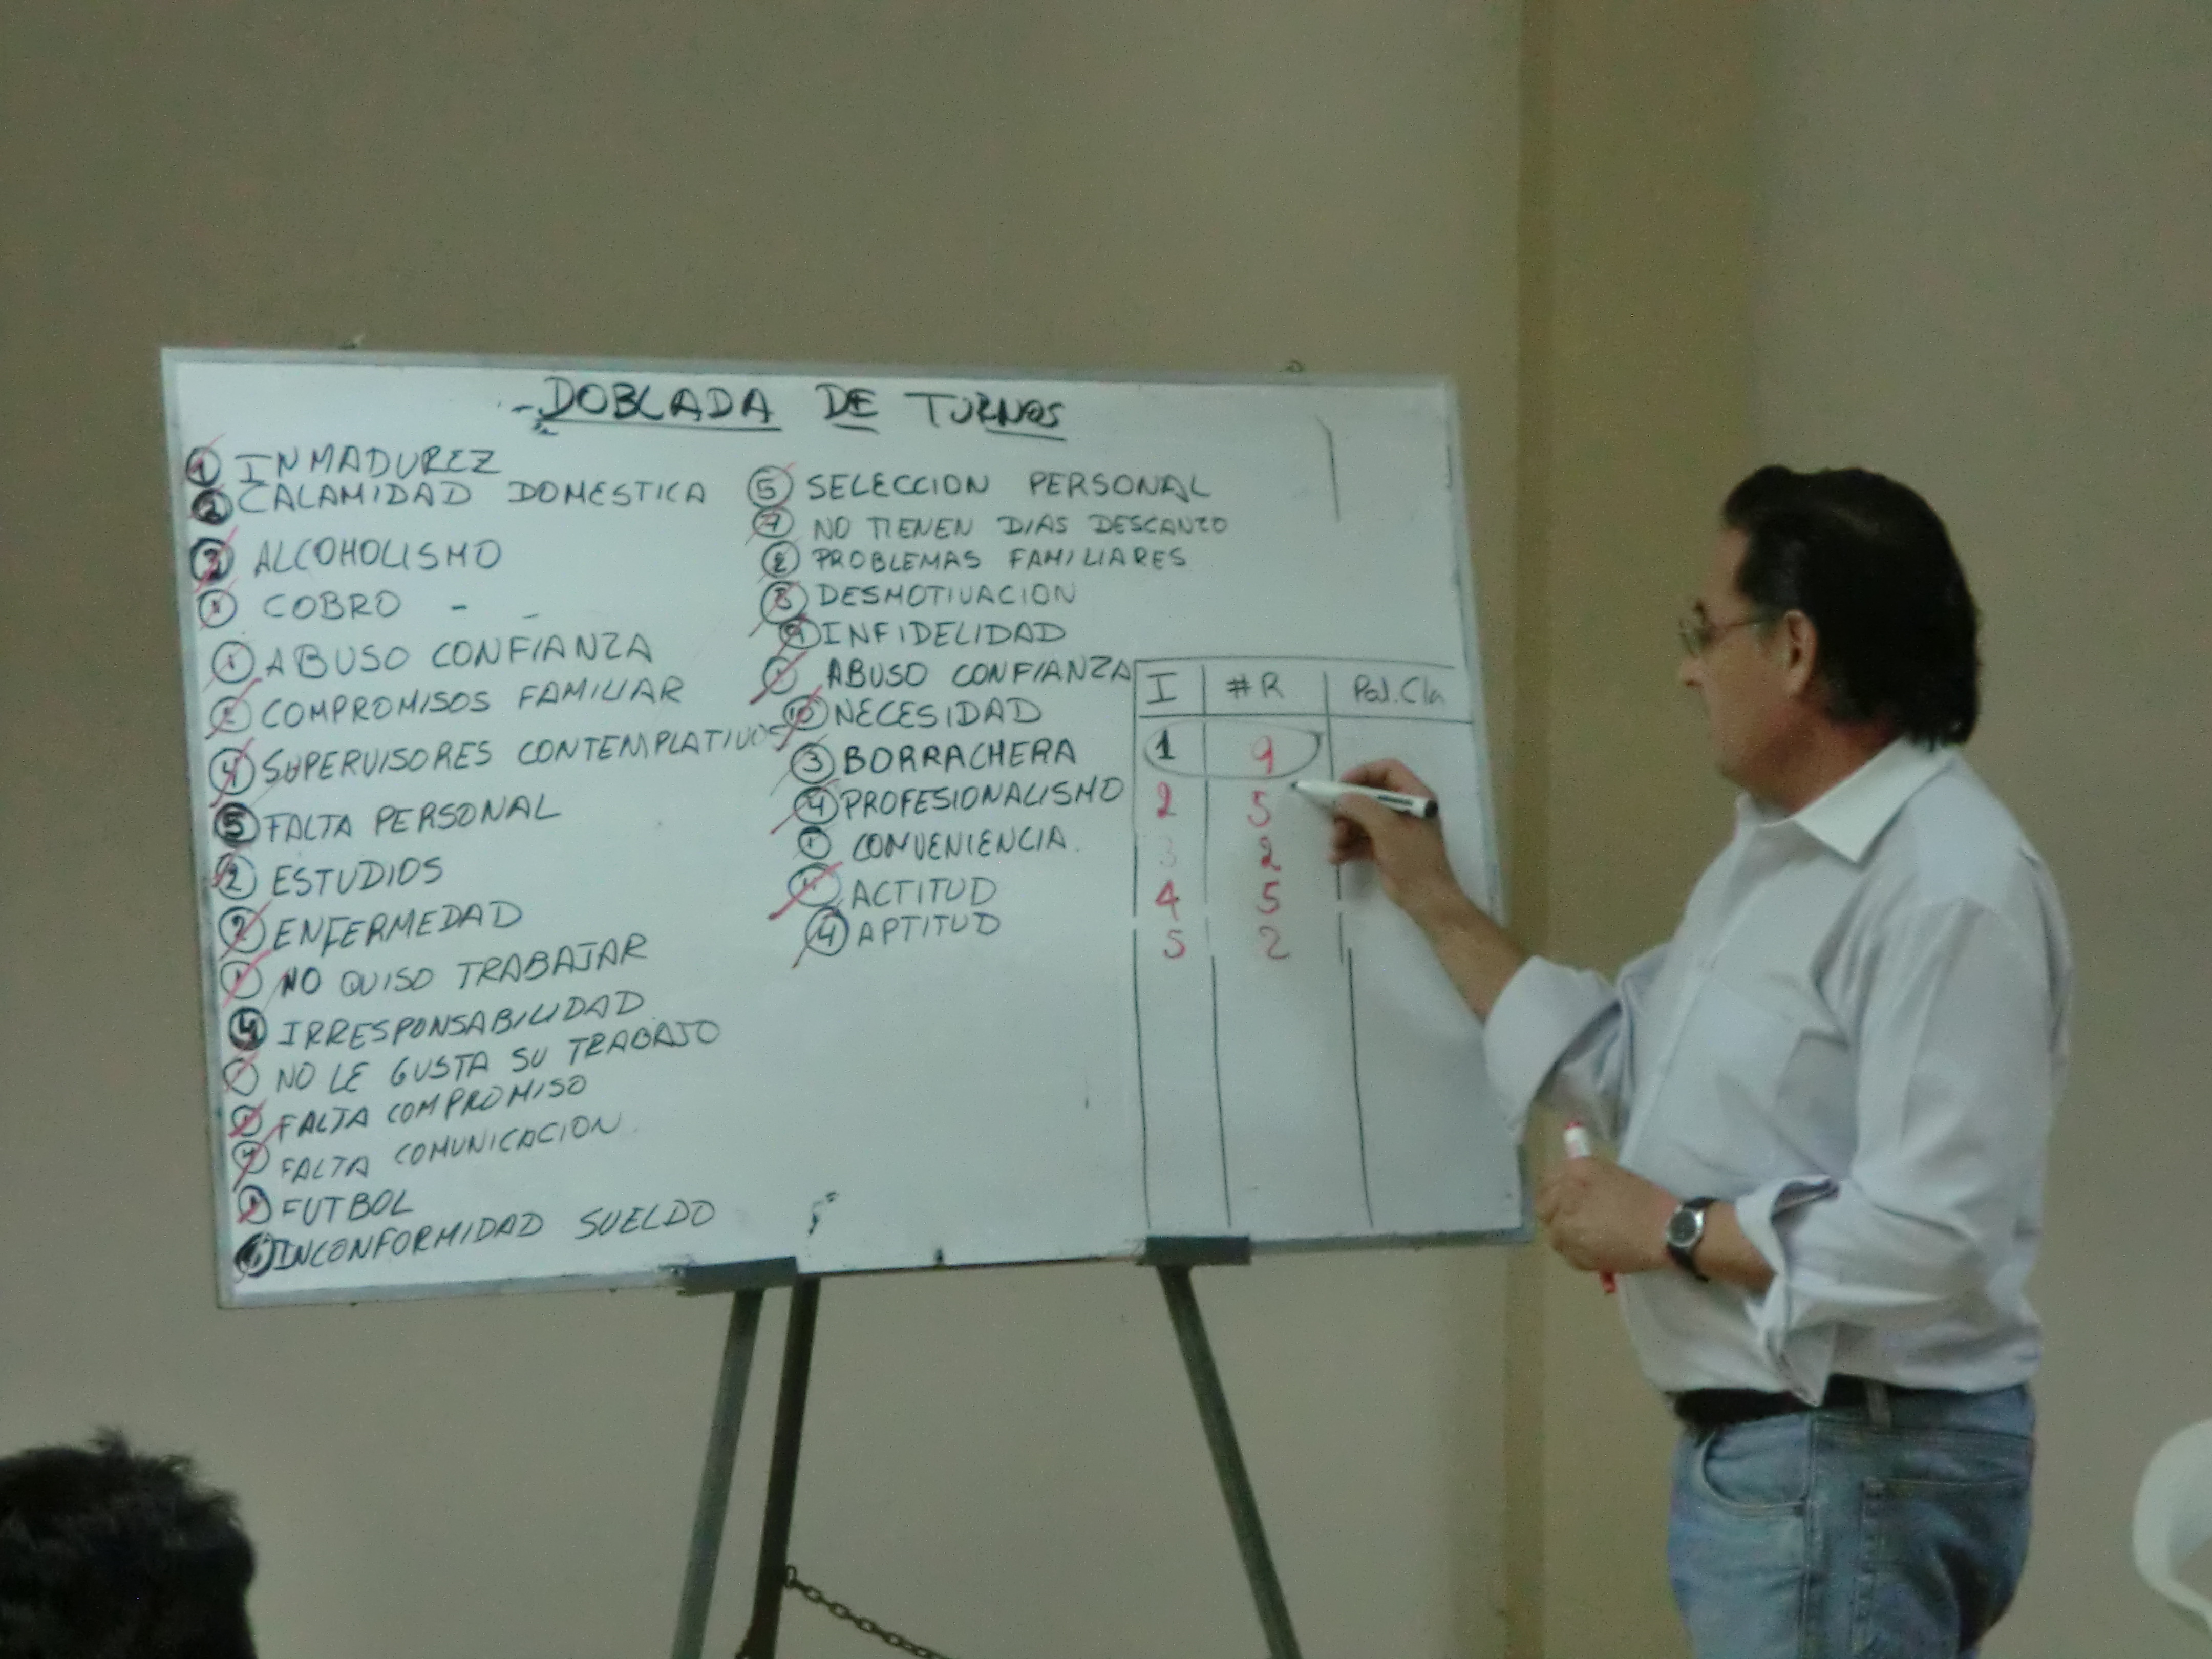 DOBLADA DE TURNOS
1 INMADUREZ
2 CALAMIDAD DOMESTICA
3 ALCOHOLISMO
1 COBRO -
1 ABUSO CONFIANZA
2 COMPROMISOS FAMILIAR
4 SUPERVISORES CONTEMPLATIVOS
5 FALTA PERSONAL
2 ESTUDIOS
2 ENFERMEDAD
1 NO QUISO TRABAJAR
4 IRRESPONSABILIDAD
NO LE GUSTA SU TRABAJO
FALTA COMPROMISO
4 FALTA COMUNICACION
1 FUTBOL
6 INCONFORMIDAD SUELDO
5 SELECCION PERSONAL
7 NO TIENEN DIAS DESCANZO
2 PROBLEMAS FAMILIARES
8 DESMOTIVACION
9 INFIDELIDAD
1 ABUSO CONFIANZA
10 NECESIDAD
3 BORRACHERA
4 PROFESIONALISMO
1 CONVENIENCIA.
ACTITUD
4 APTITUD
I #R Pal.Cla
1 9
2 5
3 2
4 5
5 2